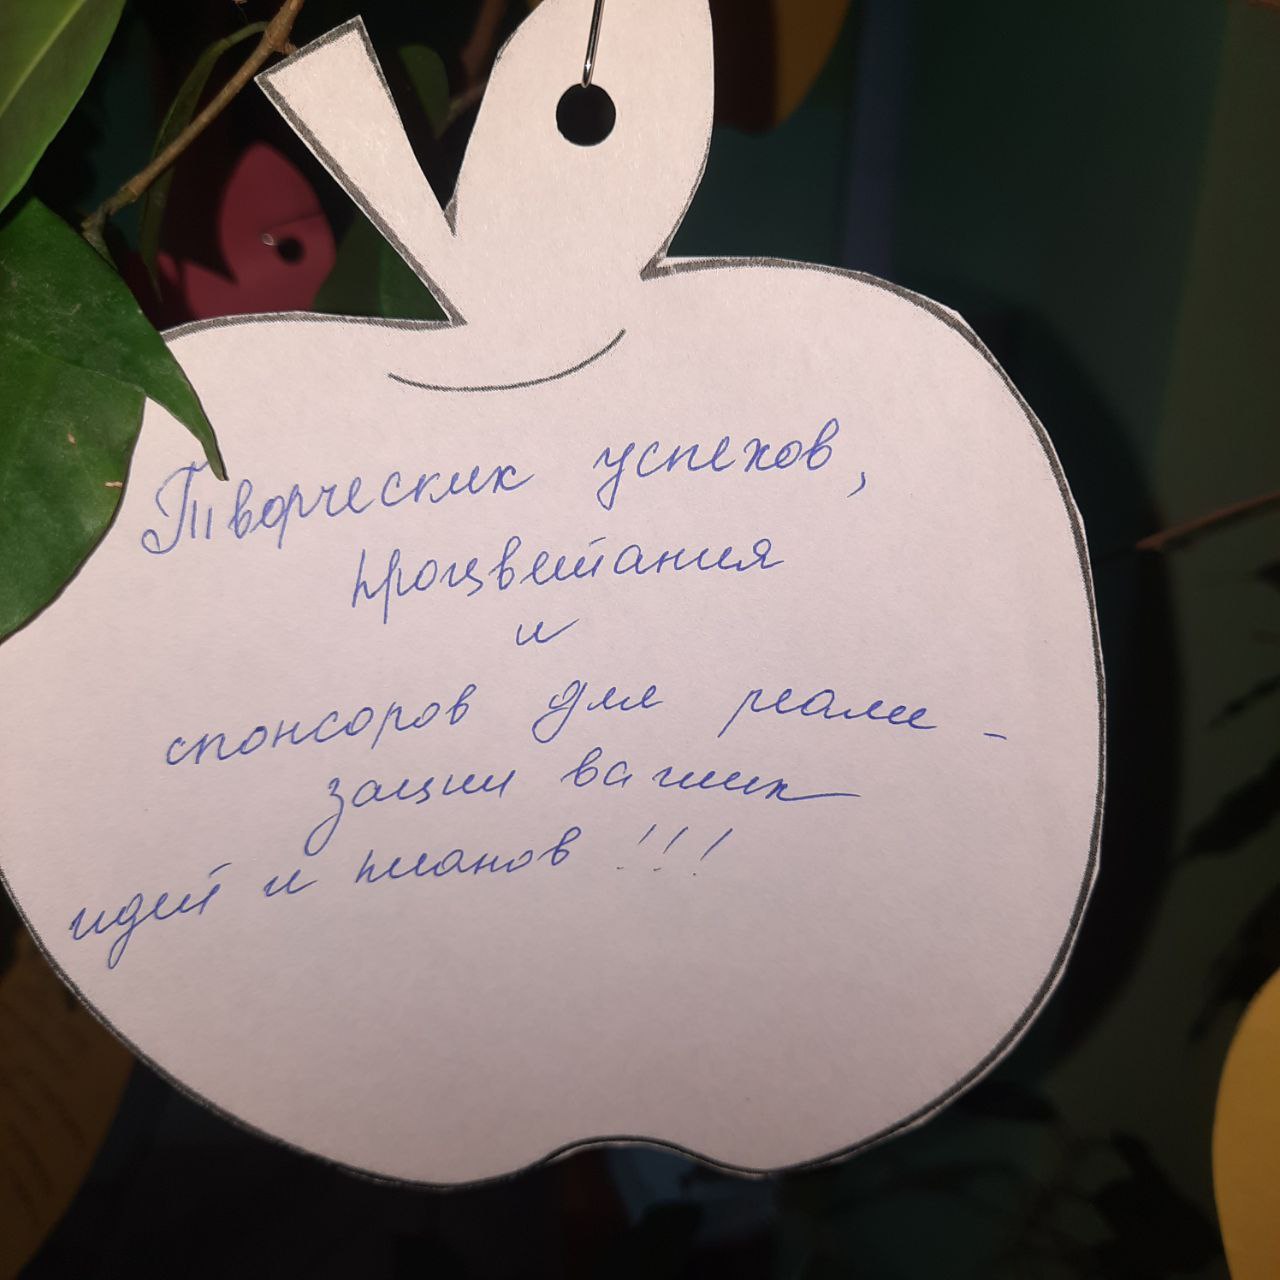 Творческих успехов,
процветания
и
спонсоров для реали-
зации ваших
идей и планов!!!